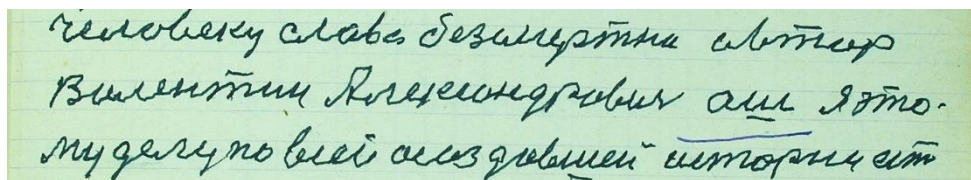 человеку слава безсмертна автор
Валентин Александрович аш я это-
му делу по всей истории